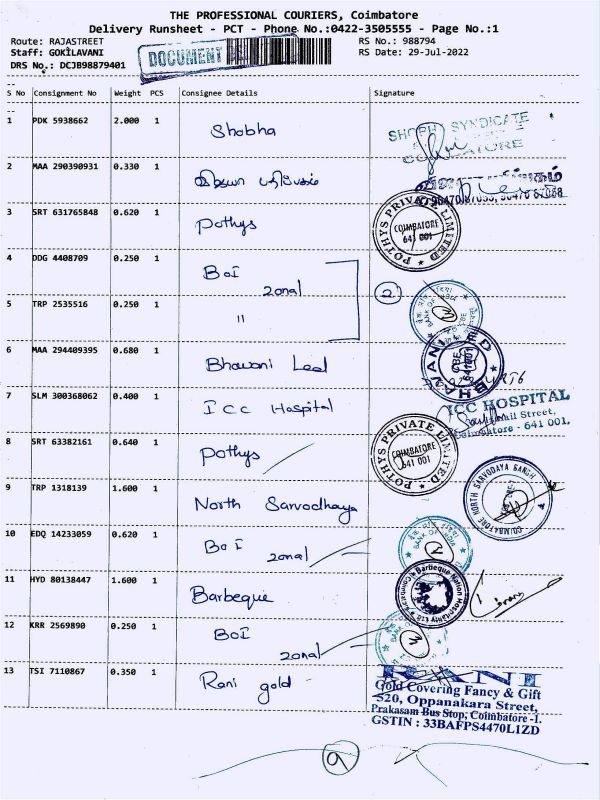 THE PROFESSIONAL COURIERS, Coimbatore
Delivery Runsheet - PCT - Phone No.:0422-3505555 - Page No.:1
Route: RAJASTREET RS No.: 988794
Staff: GOKILAVANI RS Date: 29-Jul-2022
DRS No.: DCJB98879401
DOCUMENT
S No Consignment No Weight PCS Consignee Details Signature
1 PDK 5938662 2.000 1 Shobha
SYNDICATE
2 MAA 290390931 0.330 1
3 SRT 631765848 0.620 1 Pothys
POTHYS PRIVATE LIMITED
COIMBATORE
641 001
4 DDG 4408709 0.250 1 BoI
zonal
2
BANK OF INDIA
5 TRP 2535516 0.250 1 "
6 MAA 294409395 0.680 1 Bhavani Led
BHAVANI LED
CBE
641001
7 SLM 300368062 0.400 1 ICC Hospital
ICC HOSPITAL
Street,
Coimbatore - 641 001.
8 SRT 63382161 0.640 1 Pothys
POTHYS PRIVATE LIMITED
COIMBATORE
641 001
9 TRP 1318139 1.600 1 North Sarvodhaya
COIMBATORE NORTH SARVODAYA SANGH
10 EDQ 14233059 0.620 1 BoI
zonal
11 HYD 80138447 1.600 1 Barbeque
Barbeque Nation Hospitality Ltd
12 KRR 2569890 0.250 1 BoI
zonal
13 TSI 7110867 0.350 1 Rani gold
RANI
Gold Covering Fancy & Gift
520, Oppanakara Street,
Prakasam Bus Stop, Coimbatore -1.
GSTIN : 33BAFPS4470L1ZD
9